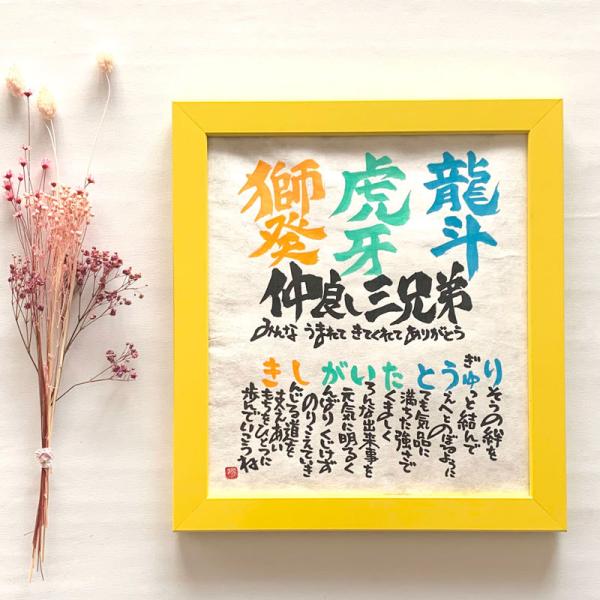 龍斗
虎牙
獅癸
仲良し三兄弟
みんな うまれて きてくれて ありがとう
りそうの絆を
ぎゅっと結んで
うえへとのぼるように
とても気品に
満ちた強さで
たくましく
いろんな出来事を
元気に明るく
がんばりくじけず
のりこえていき
しんじる道を
ささえあい
きもちをひとつに
歩んでいこうね